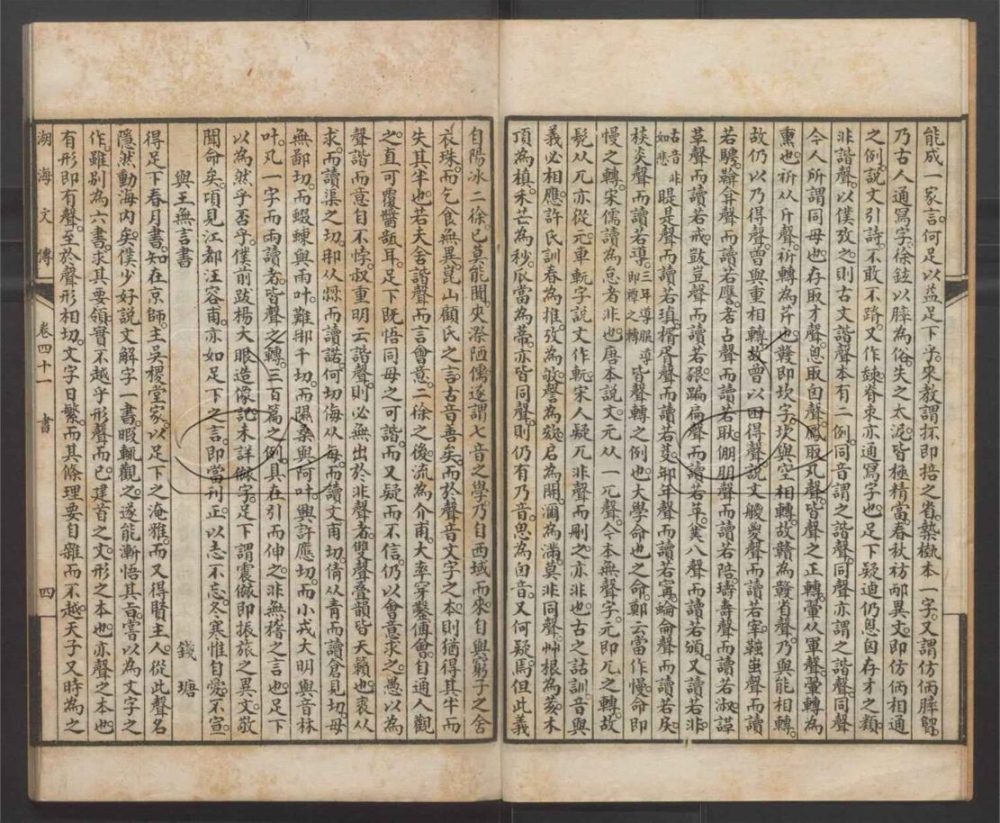 能成一家言。何足以益足下乎。來教謂抔即掊之省。槷檄本一字。又謂仿倆髀
乃古人通寫字。徐鉉以髀為俗。失之太泥。皆極精當。春秋祊邴異文。即仿倆相通
之例。說文引詩。不敢不蹐。又作趚。脊朿亦通寫字也。足下疑迪仍恩囟存才之類
非諧聲。以僕攷之。則古文諧聲本有二例。同音謂之諧聲。同聲亦謂之諧聲。同聲
今人所謂同母也。存取才聲。恩取囟聲。鳳取凡聲。皆聲之正轉。葷从軍聲。葷轉為
熏也。祈从斤聲。祈轉為芹也。贛即坎字。坎與空相轉。故贛為贛省聲。乃與能相轉。
故仍以乃得聲。曾與重相轉。故會以囪得聲。說文艐㚇聲。而讀若宰。䡨蚩聲。而讀
若騁。䪿弁聲。而讀若麐。者占聲。而讀若耿。倗朋聲。而讀若陪。璹壽聲。而讀若淑。譂
草聲。而讀若戒。豉豈聲。而讀若㹤。蹁扁聲。而讀若苹。䒑八聲。而讀若頒。又讀若非
古音非如悲 睼是聲。而讀若瑱。楈胥聲。而讀若芟。䢵年聲。而讀若寗。䋦侖聲。而讀若戾
棪炎聲。而讀若導。三年導服導即禫之轉 皆聲轉之例也。大學命也之命。鄭云當作慢。命即
慢之轉。宋儒讀為怠者非也。唐本說文。元从一兀聲。今本無聲字。元即兀之轉。故
髡从兀。亦從元。車軏字說文作軏。宋人疑兀非聲而刪之。亦非也。古之詁訓。音與
義必相應。許氏訓春為推。攷為敂。謦為欬。启為開。濔為滿。莫非同聲。艸根為荄。木
頂為槙。禾芒為秒。瓜當為蔕。亦皆同聲。則仍有乃音。思為囟音。又何疑焉。但此義
自陽冰二徐。已莫能聞。夾漈陋儒。遂謂七音之學。乃自西域而來。自與窮子之舍
衣珠。而乞食無異。崑山顧氏之言古音善矣。而於聲音文字之本。則猶得其半而
失其半也。若夫舍諧聲而言會意。二徐之後。流為介甫。大率穿鑿傅會。自通人觀
之。直可覆醬瓿耳。足下既悟同母之可諧。而又疑而不信。仍以會意求之。愚以為
聲諧而意自不悖。叔重明云諧聲。則必無出於非聲者。雙聲疊韻。皆天籟也。裘从
求。而讀渠之切。那从冄。而讀諾何切。侮从每。而讀文甫切。倩从青。而讀倉見切。母
無鄙切。而蝃蝀與雨叶。難那干切。而隰桑與阿叶。興許應切。而小戎大明與音林
叶。凡一字而兩讀者。皆聲之轉。三百篇之例具在。引而伸之。非無稽之言也。足下
以為然乎否乎。僕前跋楊大眼造像記。未詳儌字。足下謂震儌即振旅之異文。敬
聞命矣。項見江都汪容甫。亦如足下之言。即當刊正。以志不忘。冬寒惟自愛。不宣
與王無言書
錢塘
得足下春月書。知在京師。主吳稷堂家。以足下之淹雅。而又得賢主人。從此聲名
隱然動海內矣。僕少好說文解字一書。暇輒觀之。遂能漸悟其旨。嘗以為文字之
作。雖別為六書。求其要領。實不越乎形聲而已。建首之文。形之本也。亦聲之本也
有形即有聲。至於聲形相切。文字日繁。而其條理。要自雜而不越。天子又時為之
湖海文傳 卷四十一 書 四